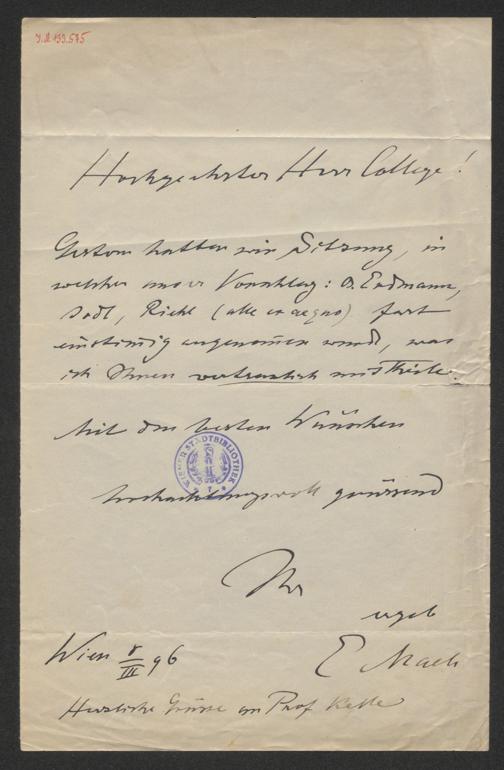 J.N. 133.575
Hochgeehrter Herr College!
Gestern hatten wir Sitzung, in
welcher unser Vorschlag: B. Erdmann,
Jodl, Riehl (alle ex aequo) fast
einstimmig angenommen wurde, was
ich Ihnen vertraulich mittheile.
Mit den besten Wünschen
WIENER STADTBIBLIOTHEK
hochachtungsvoll grüssend
Ihr
ergeb
E Mach
Wien III 96
Herzliche Grüsse an Prof